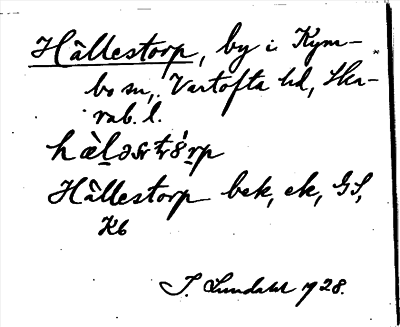 Hällestorp, by i Kym-
bo sn, Vartofta hd, Ska-
rab. l.
hæ̀l̠əstr̥ȣ́r̠p
Hällestorp bek, ek, GS,
Kb
I. Lundahl 1928.